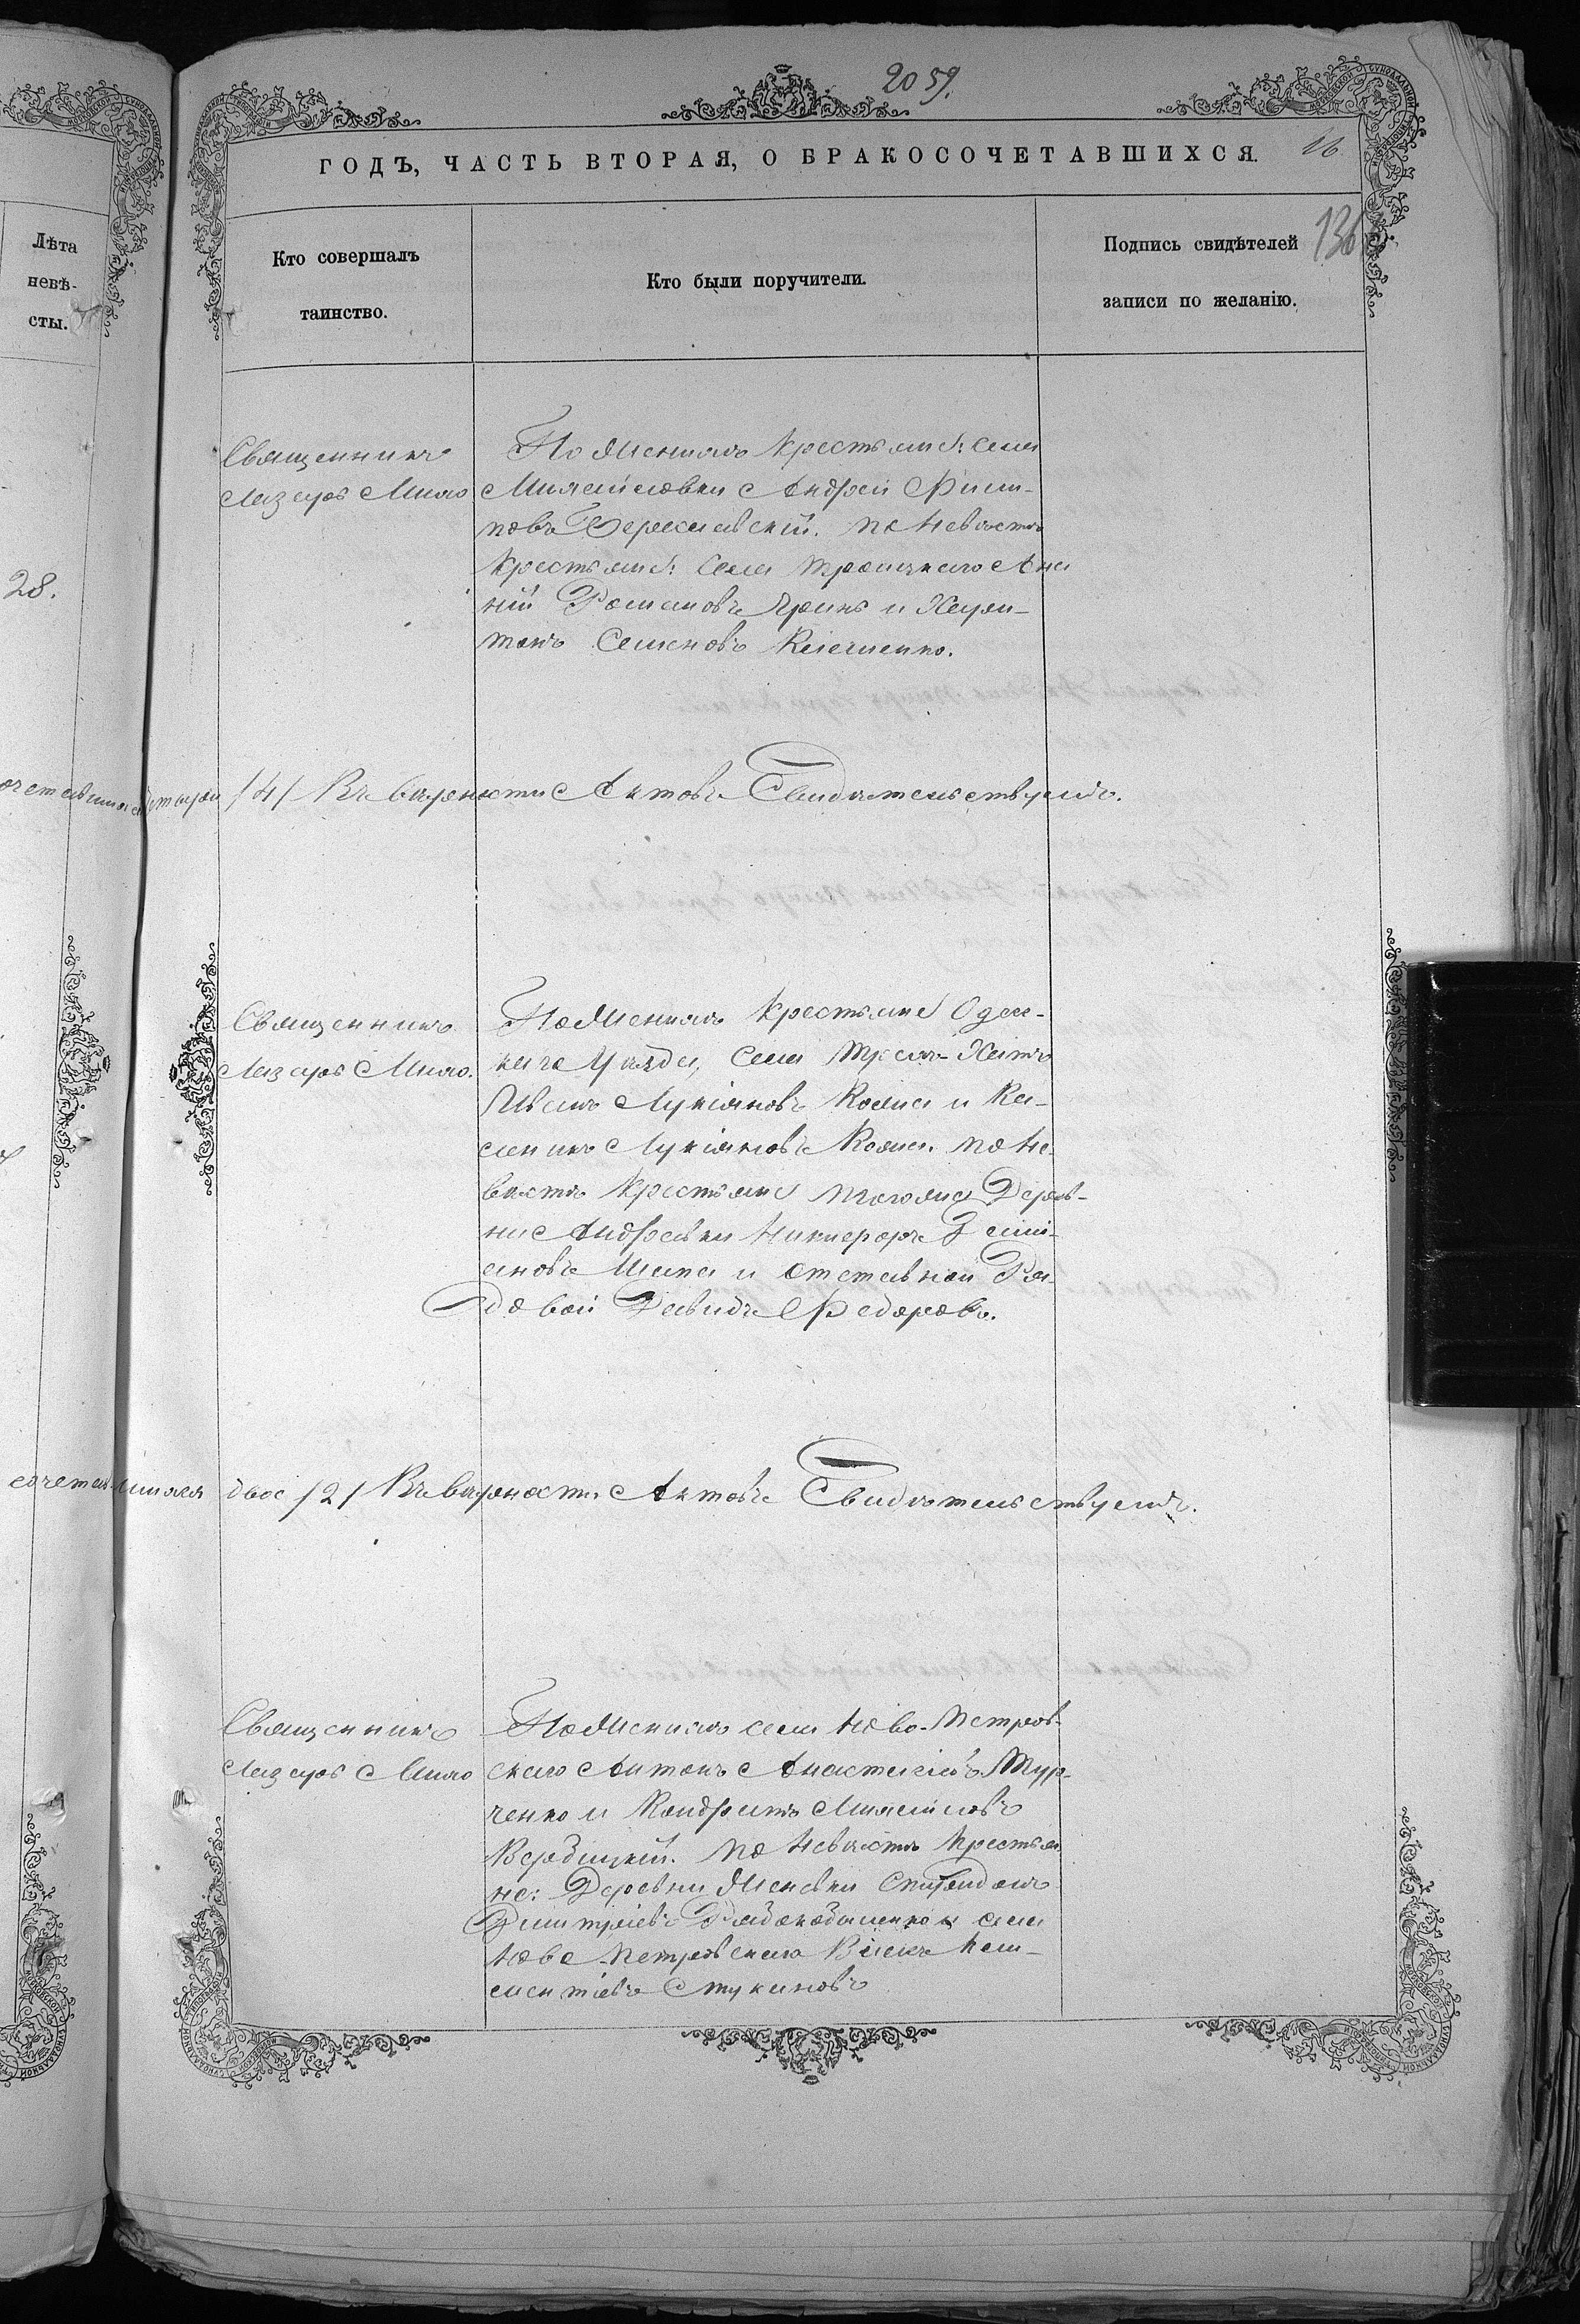 2059.
ГОДЪ, ЧАСТЬ ВТОРАЯ, О БРАКОСОЧЕТАВШИХСЯ.
16
136
Лѣта
невѣ-
сты.
Кто совершалъ
таинство.
Кто были поручители.
Подпись свидѣтелей
записи по желанію.
28.
Священникъ
Лазарь Мило
По Женихѣ Крестьяне: села
Михайловки Андрей Филип-
повъ Переславскій. по Невѣстѣ
Крестьяне: Села Троицкаго Ана
ній Романовъ и Хари-
тонъ Семеновъ
/4/ Въ вѣрности Актовъ Свидѣтельствуемъ.
Священникъ
Лазарь Мило.
По Женихѣ Крестьяне Одес-
каго Уѣзда, Села Трехъ-Хатъ
Иванъ Лукіановъ Кояма и Ка-
леникъ Лукіановъ Кояма. по Не-
вѣстѣ Крестьяне тогоже Дерев-
ни Андреевки Никифоръ Деми-
ановъ и отставной Ря-
довой Давидъ Федоровъ.
сочетавшихся двое /2/ Въ вѣрности Актовъ Свидѣтельствуемъ.
Священникъ
Лазарь Мило
По Женихѣ села Ново-Петров-
скаго Антонъ Анастасіевъ Тур-
ченко и Кондратъ Михайловъ
Вербицкій. по Невѣстѣ Крестья
не: Деревни Женевки Спиридонъ
Димитріевъ и села
Ново-Петровскаго
Стукановъ